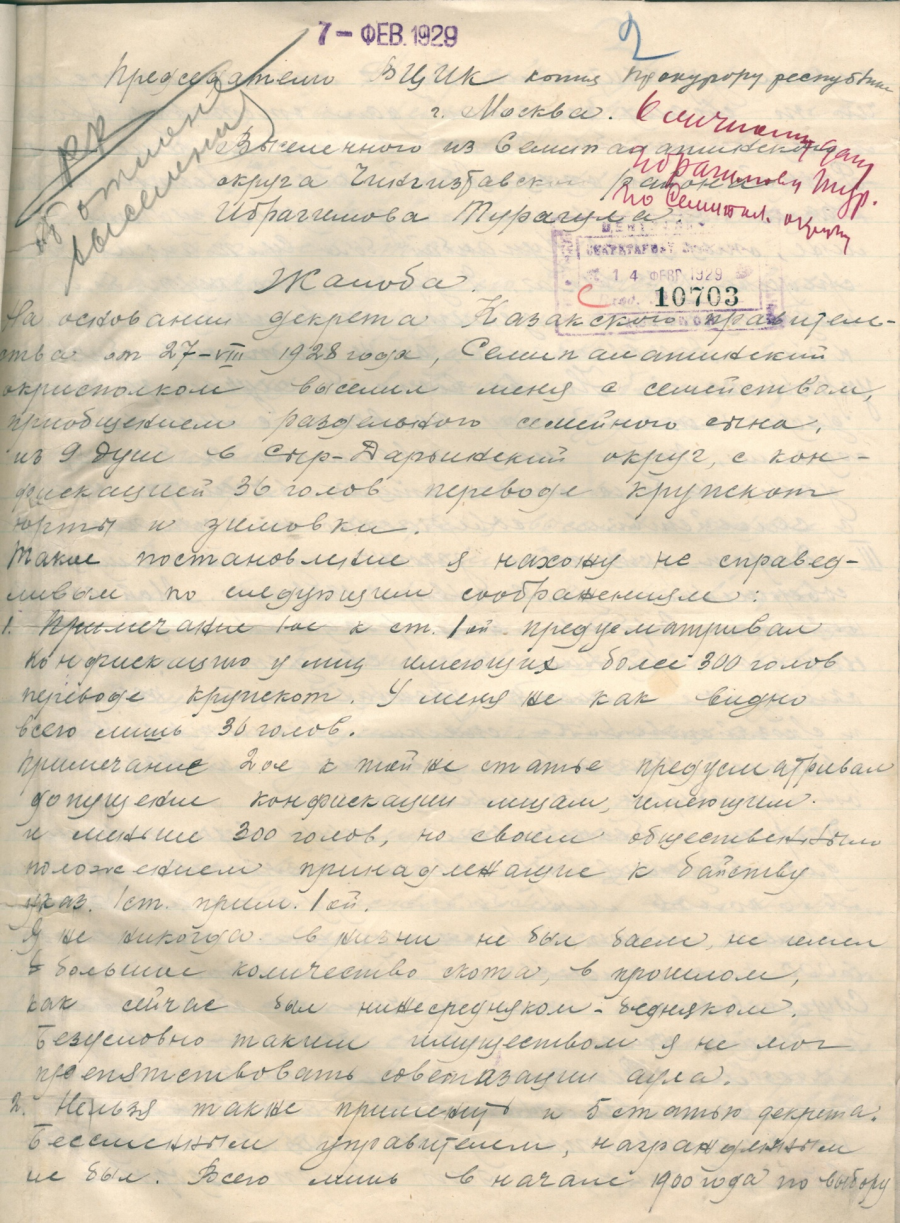 7 - ФЕВ. 1929
2
Председателю ВЦИК копия Прокурору республики
г. Москва.
Выселенного из Семипалатинского
округа Чингизтавского района
Ибрагимова Турагула.
об отмене
выселения
с личному делу
Ибрагимова Тур.
по Семипал. округу
СЕКРЕТАРИАТ
14 ФЕВР 1929
10703
Жалоба.
На основании декрета Казакского правитель-
ства от 27-VIII 1928 года, Семипалатинский
окрисполком выселил меня с семейством,
приобщением раздельного семейного сына,
из 9 душ в Сыр-Дарьинский округ, с кон-
фискацией 36 голов переводе крупскот
юрты и зимовки.
Такое постановление я нахожу не справед-
ливым по следующим соображениям:
1. Примечание 1ое к ст. 1ой предусматривал
конфискацию у лиц имеющих более 300 голов
переводе крупскот. У меня же как видно
всего лишь 36 голов.
Примечание 2ое к той же статье предусматривал
допущение конфискации лицам, имеющим
и меньше 300 голов, но своим общественным
положением принадлежащие к байству
указ. 1ст. прим. 1ой.
Я же никогда в жизни не был баем, не имел
большое количество скота, в прошлом,
как сейчас был нижесредняком-бедняком.
Безусловно таким имуществом я не мог
препятствовать советизации аула.
2. Нельзя также применить и б статью декрета.
Бессменным управителем, награжденным
не был. Всего лишь в начале 1900 года по выбору